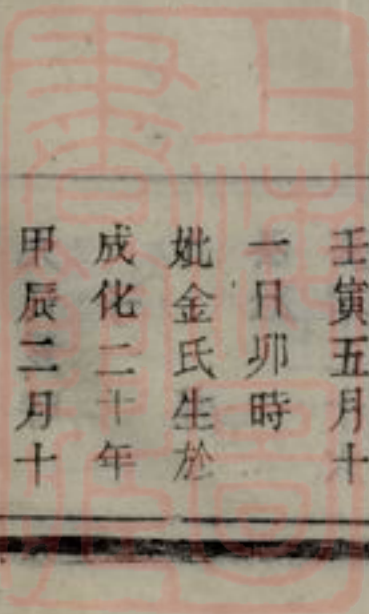 壬寅五月十
一日卯時
妣金氏生於
成化二十年
甲辰二月十